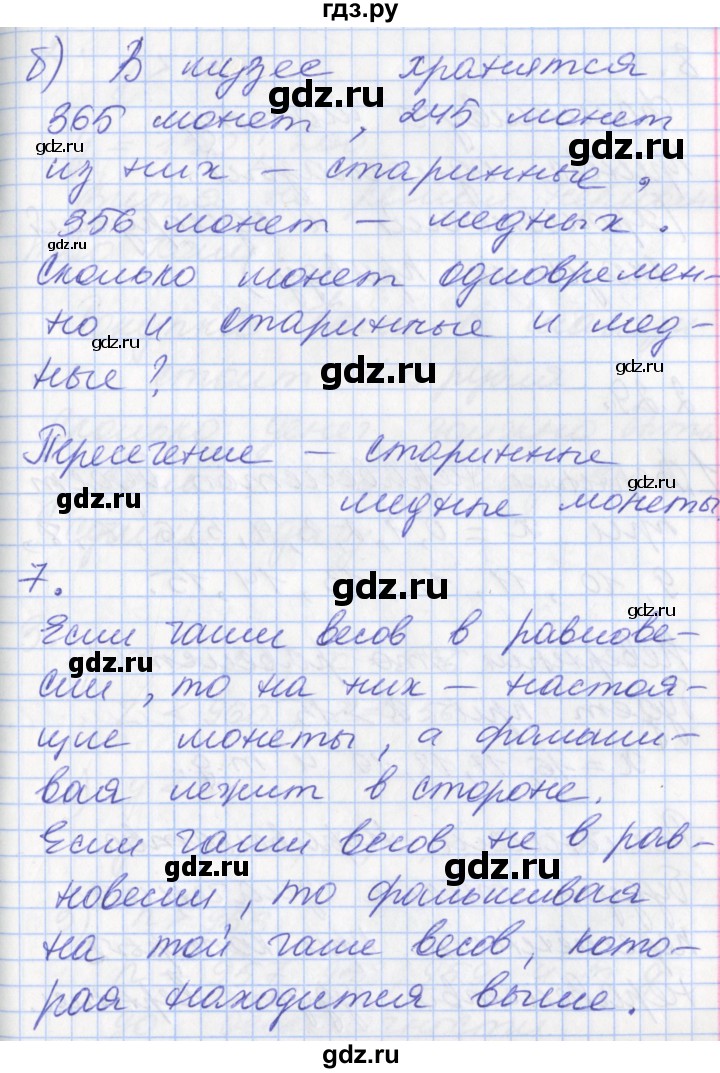 гдз.ру
б) В музее хранятся
gdz.ru
365 монет, 245 монет
gdz.ru gdz.ru
из них – старинные,
356 монет – медных.
gdz.ru
Сколько монет одновремен-
но и старинные и мед-
gdz.ru
ные?
gdz.ru
Пересечение – старинные
gdz.ru gdz.ru
медные монеты
7.
gdz.ru
gdz.ru
Если чаши весов в равнове-
gdz.ru
сии, то на них – настоя-
щие монеты, а фальши-
вая лежит в стороне.
Если чаши весов не в рав-
gdz.ru gdz.ru
новесии, то фальшивая
на той чаше весов, кото-
рая находится выше.
gdz.ru